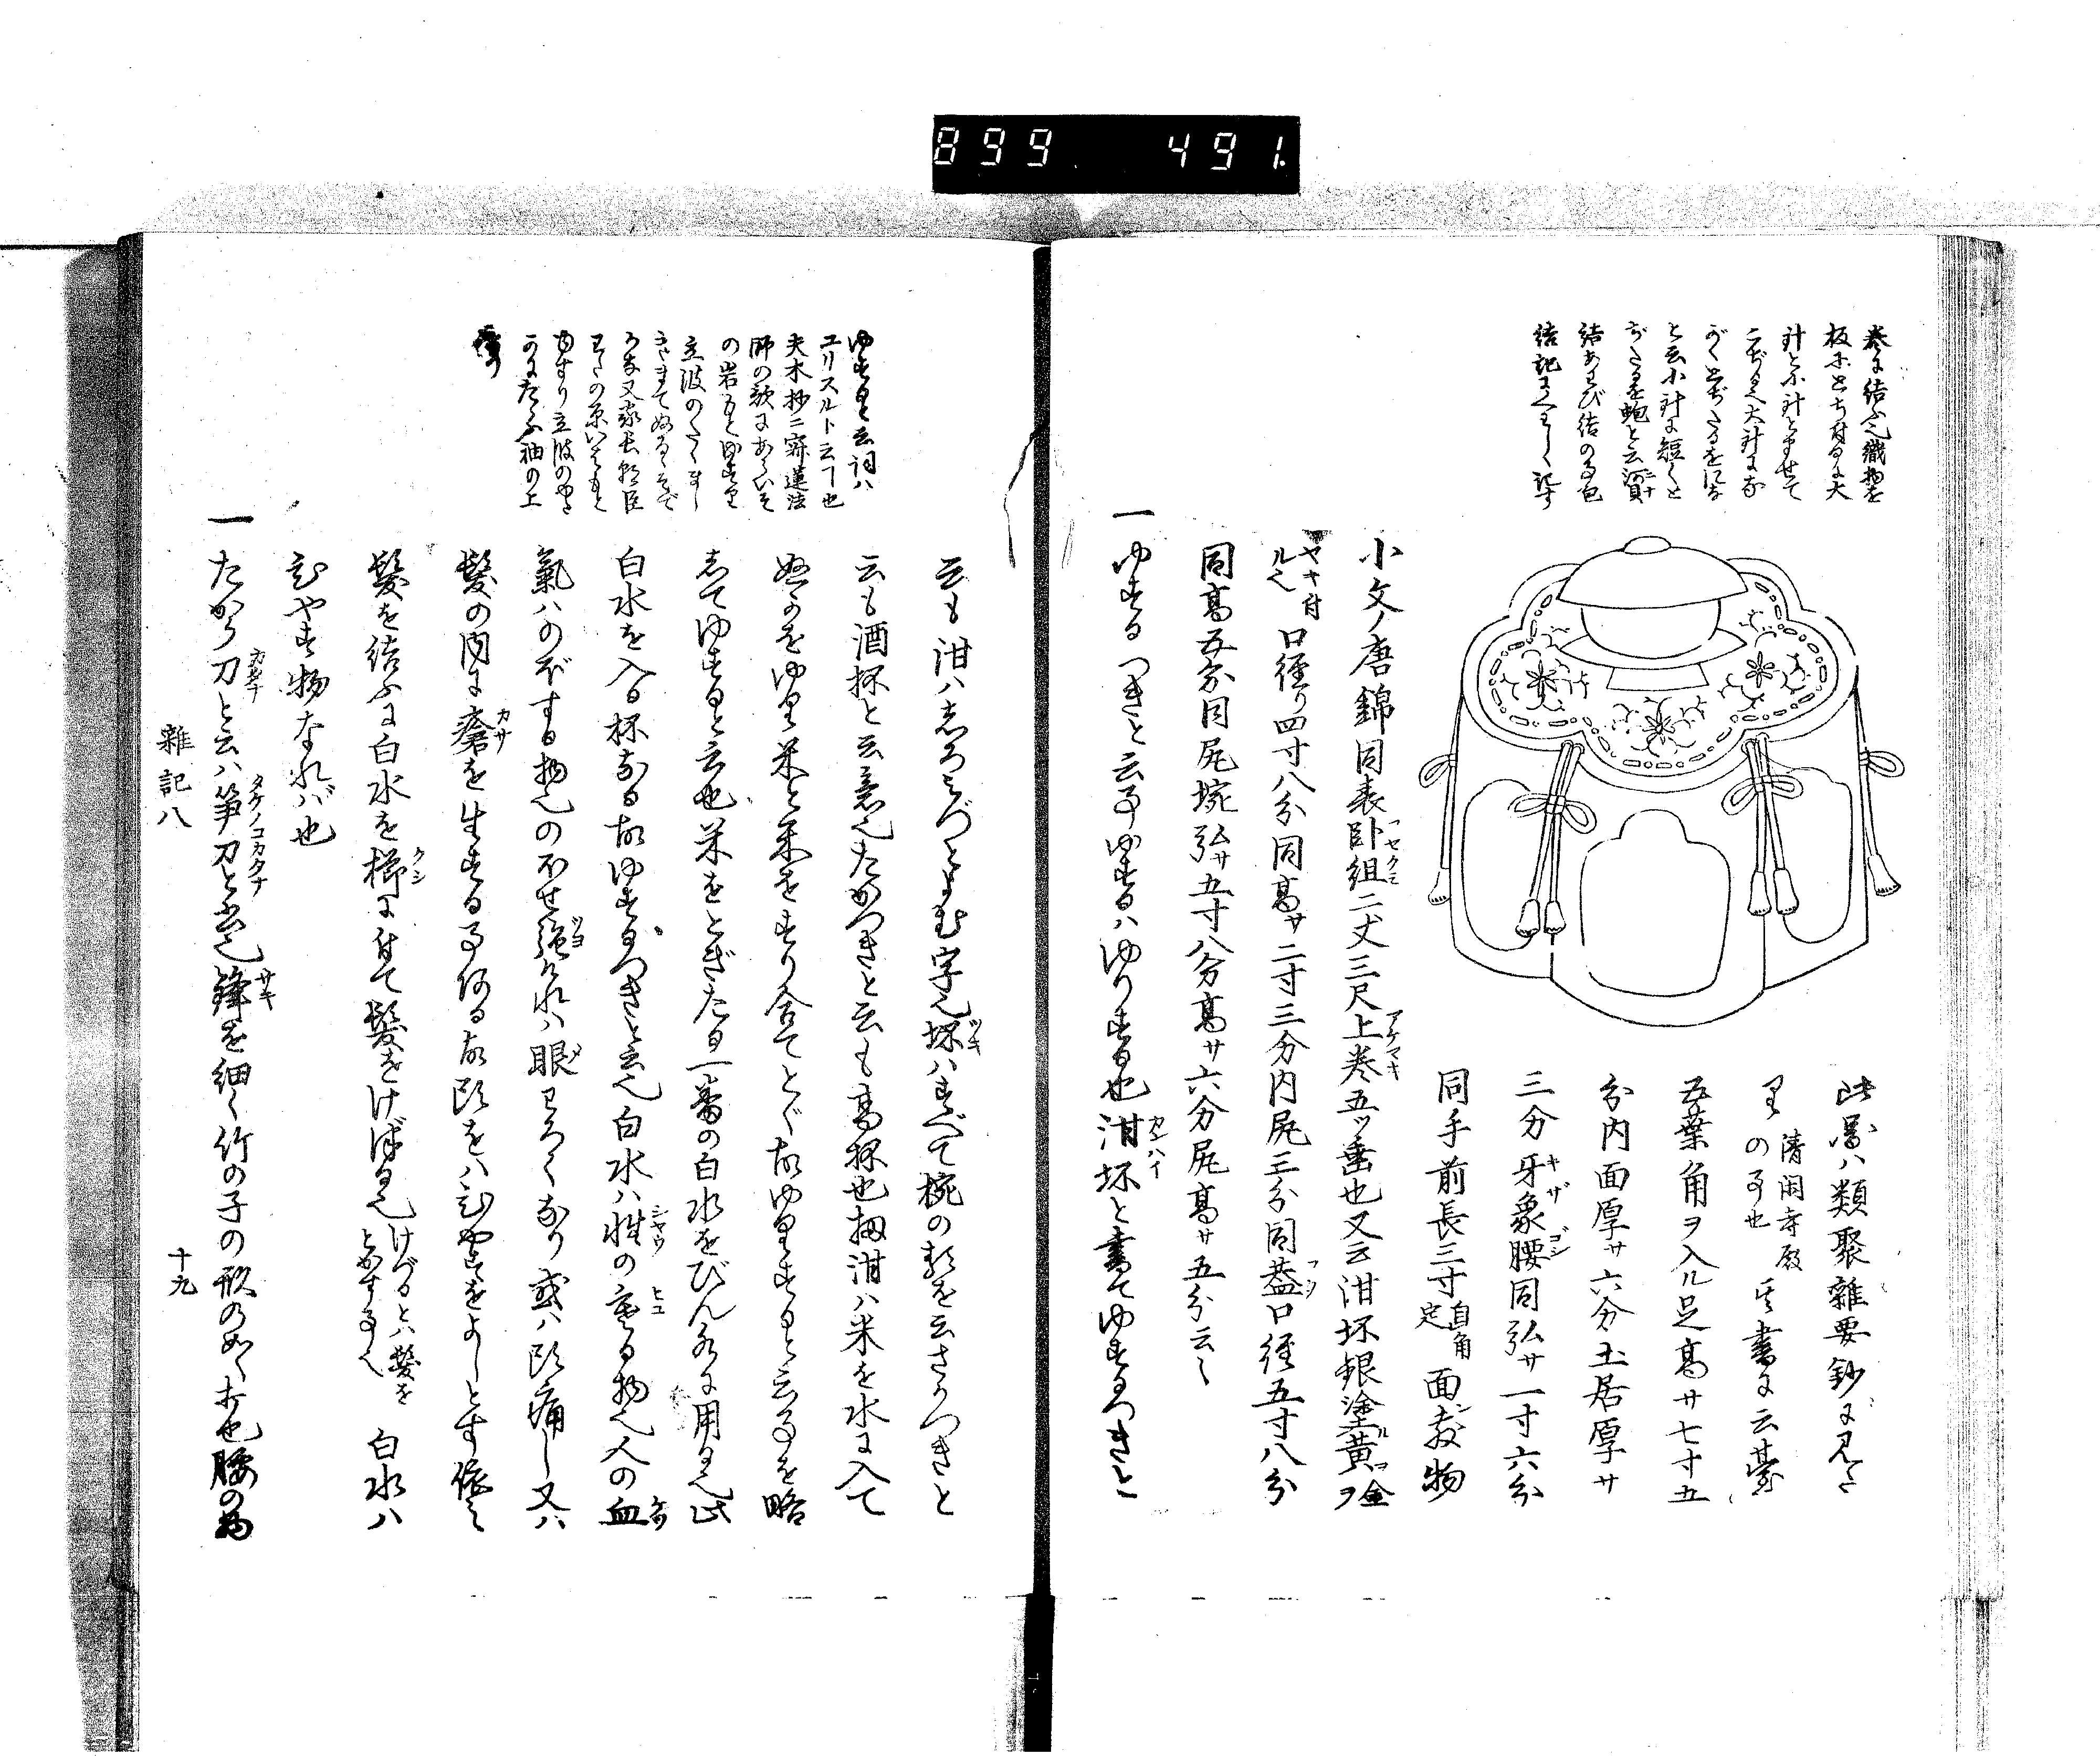 899 491.
巻に結ふ也織物を
板にとぢ付るに大
針と小針とまぜて
とぢる也大針にな
がくとぢたるをにな
と云小針に短くと
ぢたるを鮑と云蜷ニナ
結あわび結の事包
結記にくわしく記す
此図ハ類聚雑要鈔に見へた
り 清閑寺殿の事也 其書に云台
五葉角ヲ入ル足高サ七寸五
分内面厚サ六分土居厚サ
三分牙象腰同弘サ一寸六分
同手前長三寸自角定面敷物
小文ノ唐錦同表臥組二丈三尺上巻五ツ垂也又云泔坏銀塗黄金ヲ
ヤキ付ル也口径リ四寸八分同高サ二寸三分内尻三分同蓋口径五寸八分
同高五分同尻埦弘サ五寸八分高サ六分尻高サ五分云々
一ゆするつきと云事ゆするハゆりする也泔坏と書てゆするつきと
云も泔ハしろミづとよむ字也坏ハすべて椀の類を云さかつきと
云も酒杯と云意也たかつきと云も高杯也扨泔ハ米を水に入て
ぬかをゆり米と米をすり合てとぐ故ゆりすりと云事を略
してゆすると云也米をとぎたる一番の白水をびん水に用る也此
白水を入る杯なる故ゆするつきと云也白水ハ性の寒る物也人の血
氣ハのぼする物也のぼせ強けれハ眼わろくなり或ハ頭痛し又ハ
髪の内に瘡を生する事ある故頭をハひやすをよしとす依之
髪を結ふに白水を櫛に付て髪をけづる也けづるとハ髪をとかする事也 白水ハ
ひやす物なれバ也
一たかう刀と云ハ笋刀と云也鋒を細く竹の子の形のめく木也腰の物
ゆすると云詞ハ
ユリスルト云フ也
夫木抄ニ寂蓮法
師の歌にあらいそ
の岩ねにゆする
立波の
きにまてぬるゝそで
かな又家長朝臣
わたの原いそもと
ゆすり立波の
かにたかふ袖の上
かな
雜記八
十九